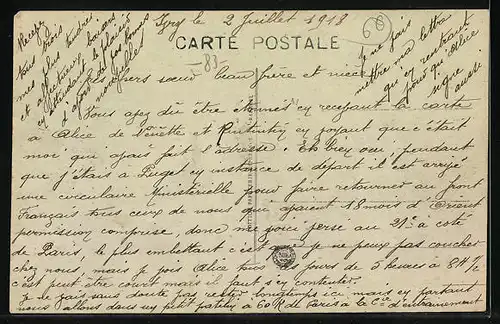 Ivry le 2 Juillet 1918
(68)
CARTE POSTALE
-83-
Mes chers sœur beau frère et nièce
Vous avez dû être étonnés en recevant la carte
à Alice de Nénette et Rintintin en voyant que c'était
moi qui avais fait l'adresse. Eh bien oui, pendant
que j'étais à Puget en instance de départ il est arrivé
une circulaire Ministérielle pour faire retourner au front
Français tous ceux de nous qui avaient 18 mois d'Orient
permission comprise, donc me voici versé au 21e à côté
de Paris, le plus embêtant c'est que je ne peux pas coucher
chez nous, mais je vois Alice tous les jours de 5 heures à 8 H ½
c'est peut être court mais il faut s'en contenter.
Je ne vais sans doute pas rester longtemps ici mais en partant
nous allons dans un petit patelin à 60 K de Paris à la Cie d'entrainement
Recevez
tous trois
mes plus tendres
et affectueux baisers
en attendant le plaisir
d'avoir de vos bonnes
nouvelles
je vais
mettre ma lettre
qu'en rentrant
pour qu'Alice
signe
aussi